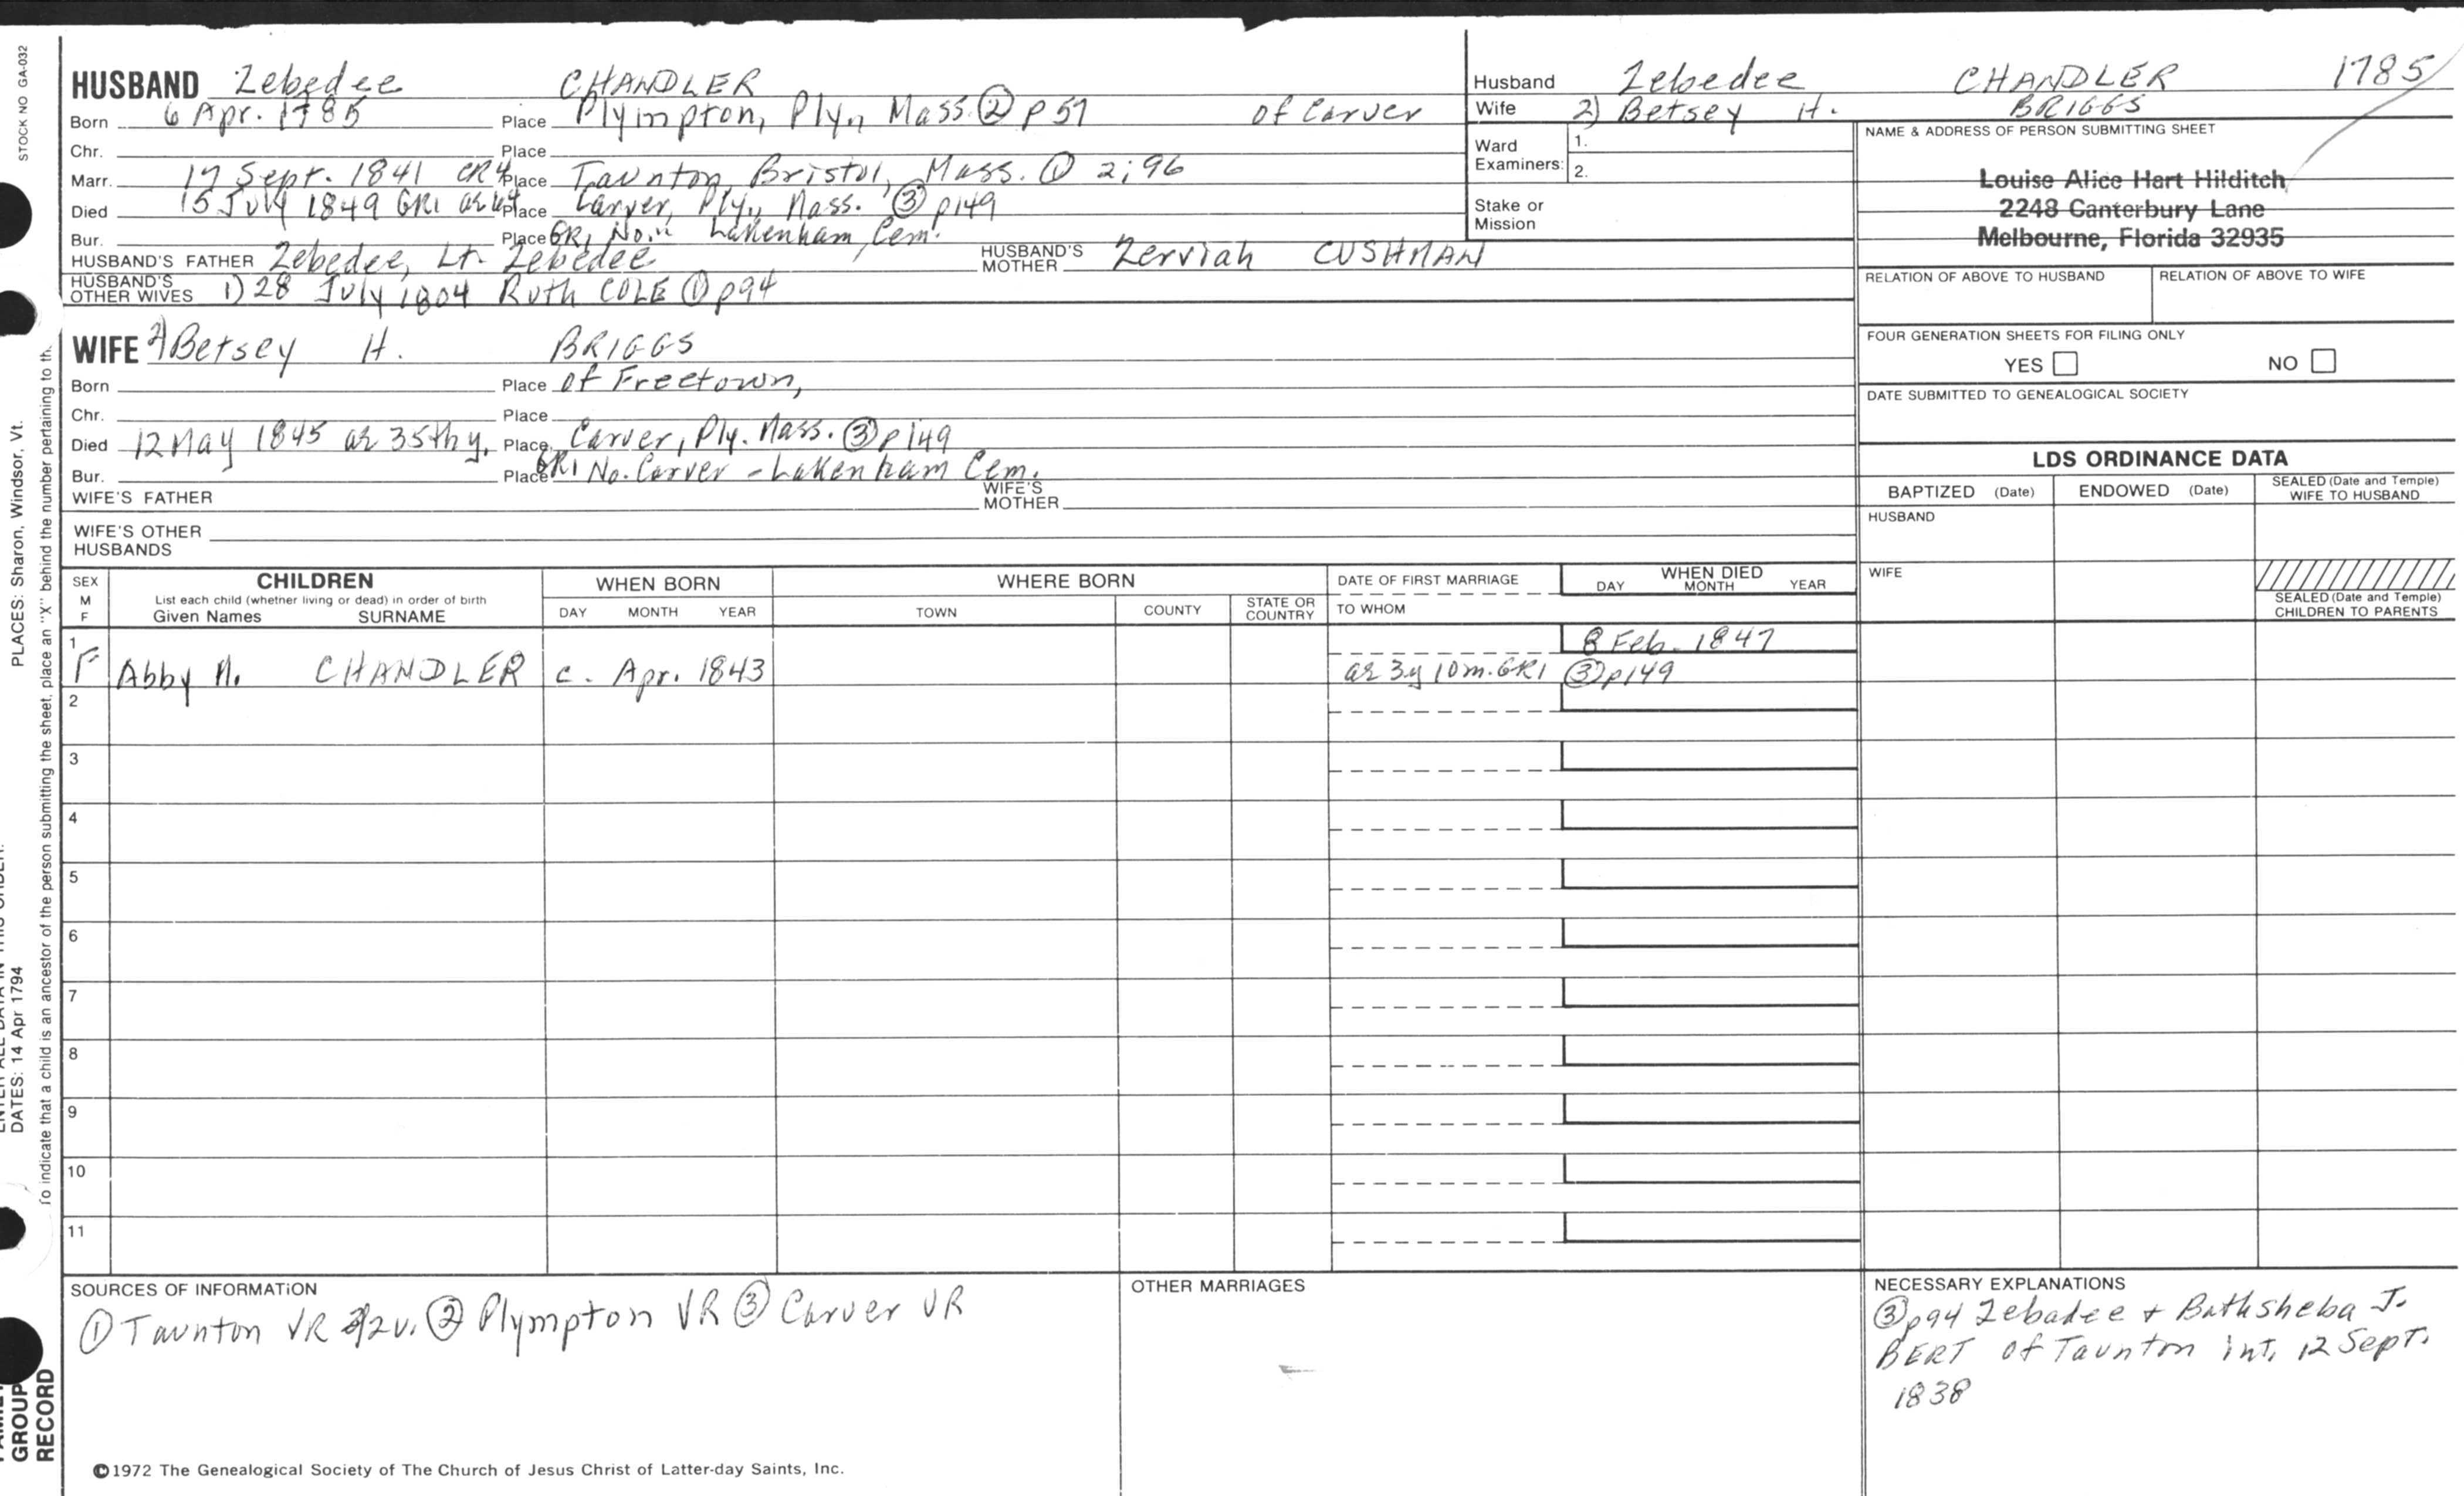 STOCK NO GA-032
HUSBAND Zebedee CHANDLER
Born 6 Apr. 1785 Place Plympton, Plyn Mass. ② p 57 of Carver
Chr. Place
Marr. 17 Sept. 1841 CR4 Place Taunton, Bristol, Mass. ① 2; 96
Died 15 July 1849 GR1 ae 64 Place Carver, Ply, Mass. ③ p149
Bur. Place GR1 No. Lakenham Cem.
HUSBAND'S FATHER Zebedee, Lt. Zebedee HUSBAND'S MOTHER Zerviah CUSHMAN
HUSBAND'S OTHER WIVES 1) 28 July 1804 Ruth COLE ① p94
WIFE 2) Betsey H. BRIGGS
Born Place of Freetown,
Chr. Place
Died 12 May 1845 ae 35thy. Place Carver, Ply. Mass. ③ p149
Bur. Place GR1 No. Carver - Lakenham Cem.
WIFE'S FATHER WIFE'S MOTHER
WIFE'S OTHER HUSBANDS
Husband Zebedee CHANDLER 1785
Wife 2) Betsey H. BRIGGS
Ward Examiners: 1.
2.
Stake or Mission
NAME & ADDRESS OF PERSON SUBMITTING SHEET
Louise Alice Hart Hilditch
2248 Canterbury Lane
Melbourne, Florida 32935
RELATION OF ABOVE TO HUSBAND RELATION OF ABOVE TO WIFE
FOUR GENERATION SHEETS FOR FILING ONLY
YES NO
DATE SUBMITTED TO GENEALOGICAL SOCIETY
LDS ORDINANCE DATA
BAPTIZED (Date) ENDOWED (Date) SEALED (Date and Temple) WIFE TO HUSBAND
HUSBAND
WIFE
SEALED (Date and Temple) CHILDREN TO PARENTS
SEX M F
CHILDREN
List each child (whether living or dead) in order of birth
Given Names SURNAME
WHEN BORN
DAY MONTH YEAR
WHERE BORN
TOWN COUNTY STATE OR COUNTRY
DATE OF FIRST MARRIAGE
TO WHOM
WHEN DIED
DAY MONTH YEAR
1 F Abby N. CHANDLER c. Apr. 1843 8 Feb. 1847
ae 3y 10m. GR1 ③ p149
2
3
4
5
6
7
8
9
10
11
SOURCES OF INFORMATION
① Taunton VR 2v. ② Plympton VR ③ Carver VR
OTHER MARRIAGES
NECESSARY EXPLANATIONS
③ p94 Zebadee + Bathsheba J.
BERT of Taunton int. 12 Sept.
1838
©1972 The Genealogical Society of The Church of Jesus Christ of Latter-day Saints, Inc.
PLACES: Sharon, Windsor, Vt.
DATES: 14 Apr 1794
To indicate that a child is an ancestor of the person submitting the sheet, place an "X" behind the number pertaining to th
GROUP
RECORD